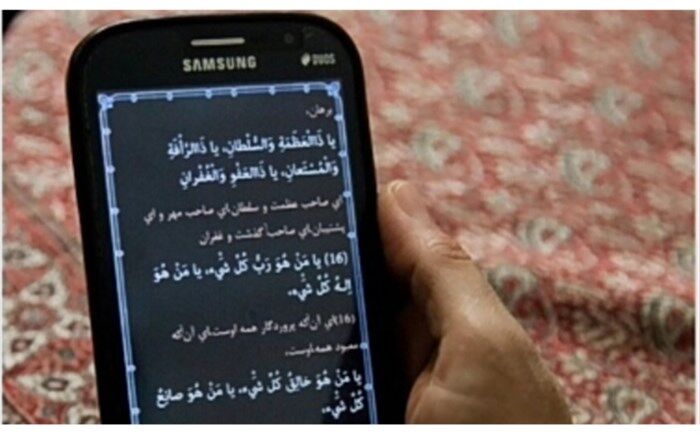 SAMSUNG
DUOS
برهان،
يا ذَالْعَظَمَةِ وَالسُّلْطانِ، يا ذَالرَّأْفَةِ
وَالْمُسْتَعانِ، يا ذَالعَفْوِ وَالْغُفْرانِ
اي صاحب عظمت و سلطان،اي صاحب مهر و اي
پشتيبان،اي صاحب گذشت و غفران
(16) يا مَنْ هُوَ رَبُّ كُلِّ شَيْء، يا مَنْ هُوَ
اِلهُ كُلِّ شَيْء،
(16)اي آن‌كه پروردگار همه اوست،اي آن‌كه
معبود همه اوست،
يا مَنْ هُوَ خالِقُ كُلِّ شَيْء، يا مَنْ هُوَ صانِعُ
كُلِّ شَيْء،